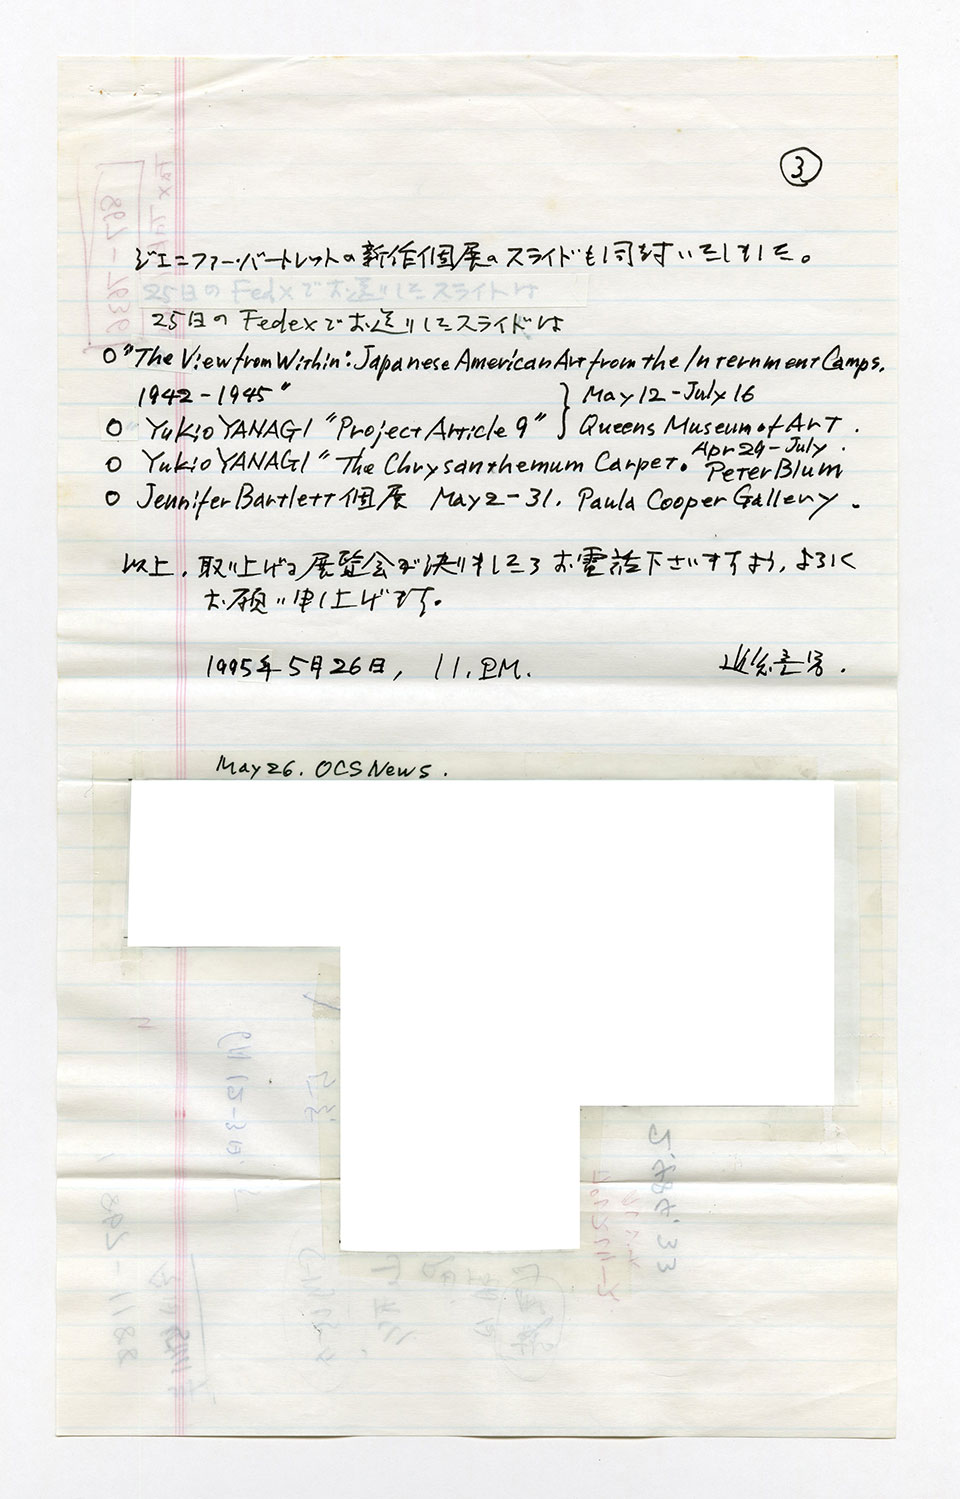 ③
ジェニファー・バートレットの新作個展のスライドも同封いたしました。
25日のFedexでお送りしたスライドは
○"The View from Within: Japanese American Art from the Internment Camps.
1942-1945" } May 12-July 16
○ Yukio YANAGI "Project Article 9" } Queens Museum of Art.
○ Yukio YANAGI "The Chrysanthemum Carpet. Apr 29-July. Peter Blum
○ Jennifer Bartlett個展 May 2-31. Paula Cooper Gallery.
以上.取り上げる展覧会が決りましたらお電話下さいますよう,よろしく
お願い申し上げます。
1995年5月26日, 11.P.M.
May 26. OCS News.